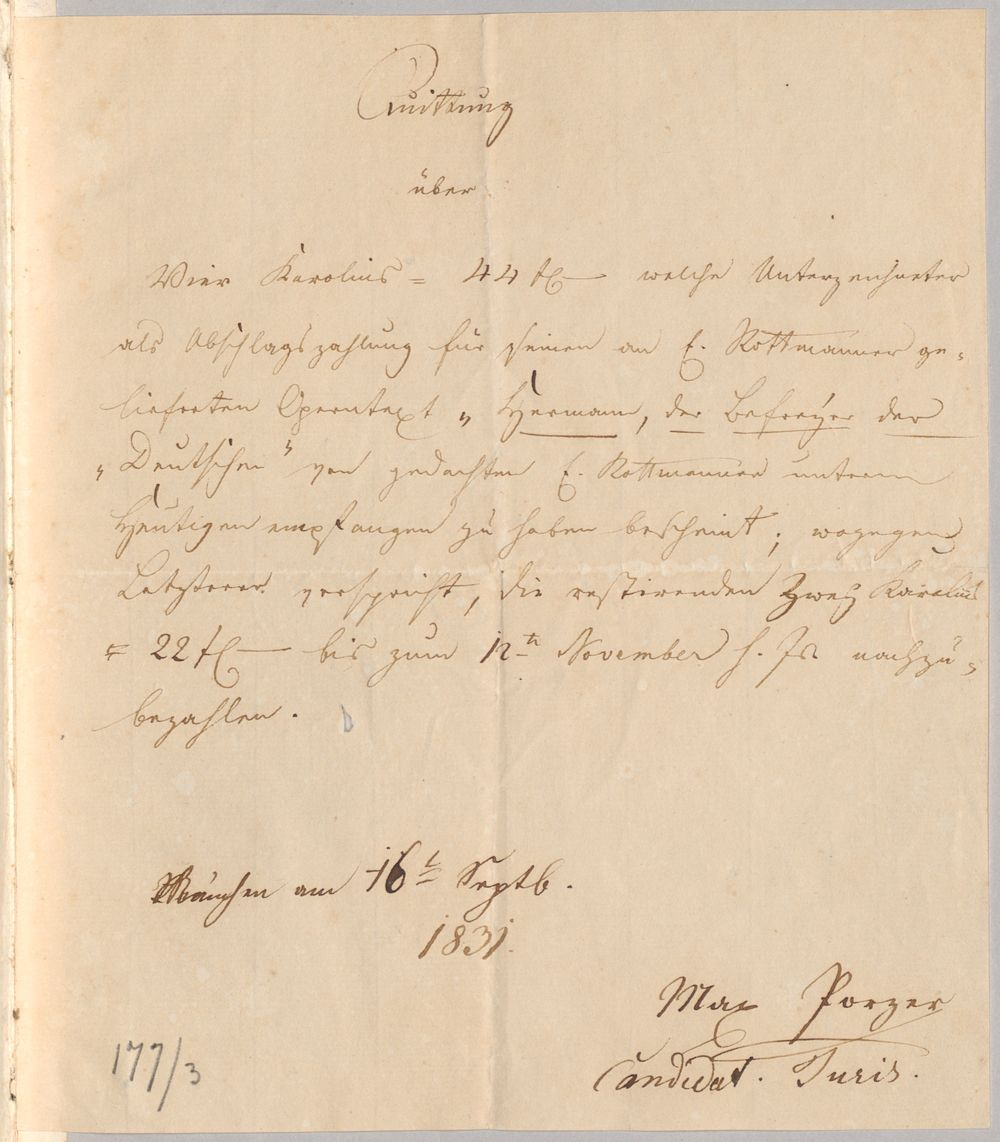 Quittung
über
Vier Karolins = 44 fl — welche Unterzeichneter
als Abschlagszahlung für seinen an E. Rottmanner ge-
lieferten Operntext „Hermann, der Befreyer der
„Deutschen" von gedachten E. Rottmanner unterm
Heutigen empfangen zu haben bescheint; wogegen
Letzterer verspricht, die restirenden Zwey Karolins
= 22 fl — bis zum 12tn November h. Js nachzu-
bezahlen.
München am 16t Septb.
1831.
Max Porzer
Candidat. Juris.
177/3